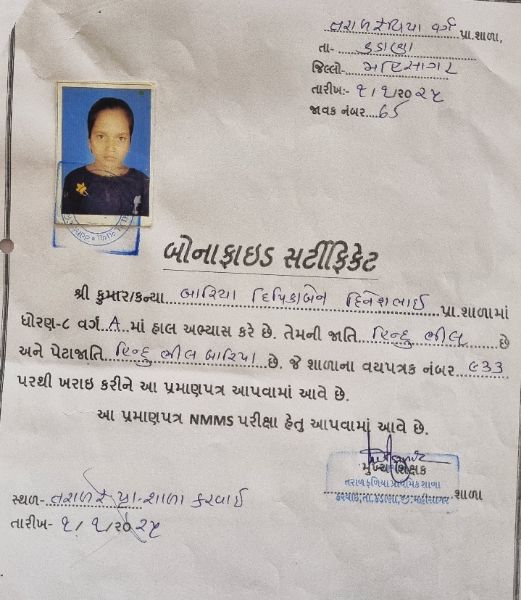 તરાળ ફળિયા વર્ગ પ્રા.શાળા,
તા- કડાણા
જિલ્લો- મહિસાગર
તારીખ:- ૧/૧/૨૦૨૫
જાવક નંબર....65
બોનાફાઇડ સર્ટીફિકેટ
શ્રી કુમાર/કન્યા ...બારિયા દિપિકાબેન દિનેશભાઈ...પ્રા.શાળામાં
ધોરણ-૮ વર્ગ.A..માં હાલ અભ્યાસ કરે છે. તેમની જાતિ ..હિન્દુ ભીલ...છે
અને પેટાજાતિ .હિન્દુ ભીલ બારિયા.છે. જે શાળાના વયપત્રક નંબર ...૯૩૩
પરથી ખરાઇ કરીને આ પ્રમાણપત્ર આપવામાં આવે છે.
આ પ્રમાણપત્ર NMMS પરીક્ષા હેતુ આપવામાં આવે છે.
મુખ્ય શિક્ષક
તરાળ ફળિયા પ્રાથમિક શાળા
કરવાઇ,તા.કડાણા,જી.મહીસાગર
શાળા
સ્થળ- તરાળ ફ પ્રા-શાળા કરવાઈ
તારીખ- ૧/૧/૨૦૨૫